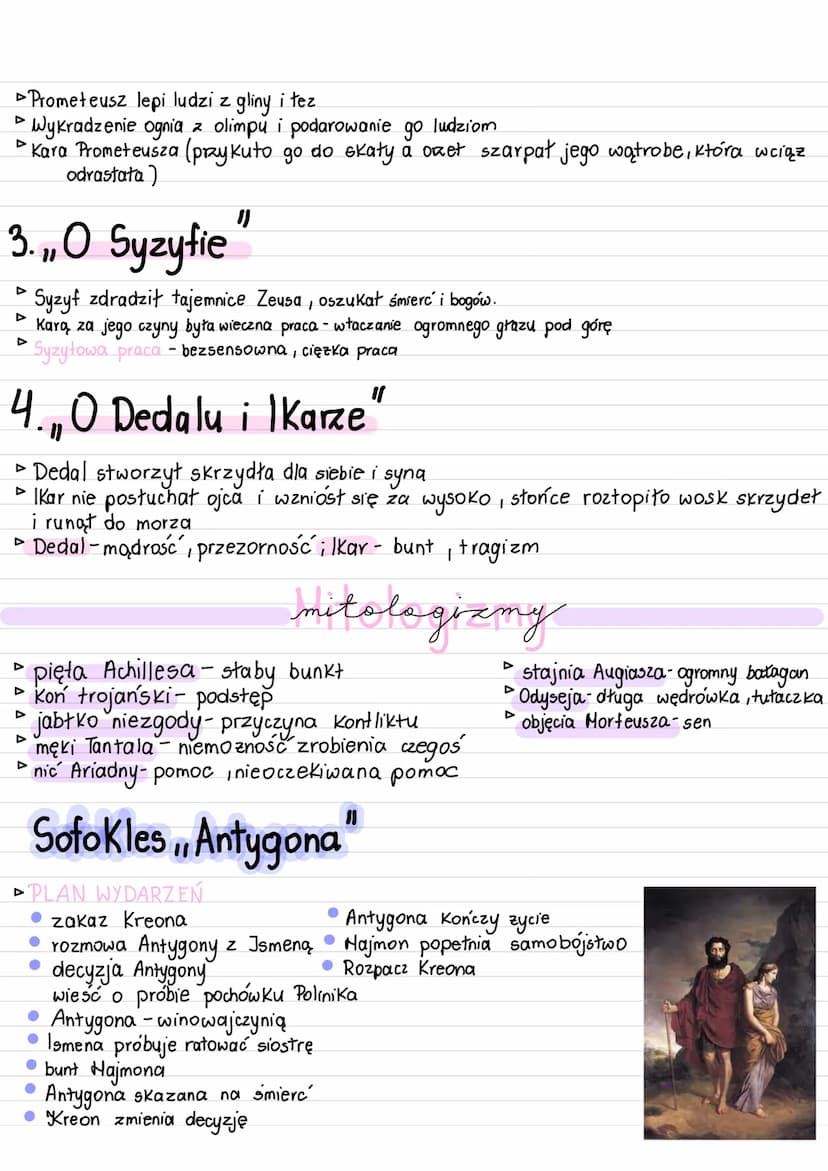 ▹Prometeusz lepi ludzi z gliny i łez
▹Wykradzenie ognia z olimpu i podarowanie go ludziom
▹Kara Prometeusza (przykuto go do skały a orzeł szarpał jego wątrobe, która wciąż
odrastała)
3. „O Syzyfie"
▹Syzyf zdradził tajemnice Zeusa, oszukał śmierć i bogów.
▹Karą za jego czyny była wieczna praca - wtaczanie ogromnego głazu pod górę
▹Syzyfowa praca - bezsensowna, ciężka praca
4. „O Dedalu i Ikarze"
▹Dedal stworzył skrzydła dla siebie i syna
▹Ikar nie posłuchał ojca i wzniósł się za wysoko, słońce roztopiło wosk skrzydeł
i runął do morza
▹Dedal - mądrość, przezorność; Ikar - bunt, tragizm
mitologizmy
▹pięta Achillesa - słaby punkt
▹koń trojański - podstęp
▹jabłko niezgody - przyczyna konfliktu
▹męki Tantala - niemożność zrobienia czegoś
▹nić Ariadny - pomoc, nieoczekiwana pomoc
▹stajnia Augiasza - ogromny bałagan
▹Odyseja - długa wędrówka, tułaczka
▹objęcia Morfeusza - sen
Sofokles „Antygona"
▹PLAN WYDARZEŃ
• zakaz Kreona
• rozmowa Antygony z Ismeną
• decyzja Antygony
wieść o próbie pochówku Polinika
• Antygona - winowajczynią
• Ismena próbuje ratować siostrę
• bunt Hajmona
• Antygona skazana na śmierć
• Kreon zmienia decyzję
• Antygona kończy życie
• Hajmon popełnia samobójstwo
• Rozpacz Kreona